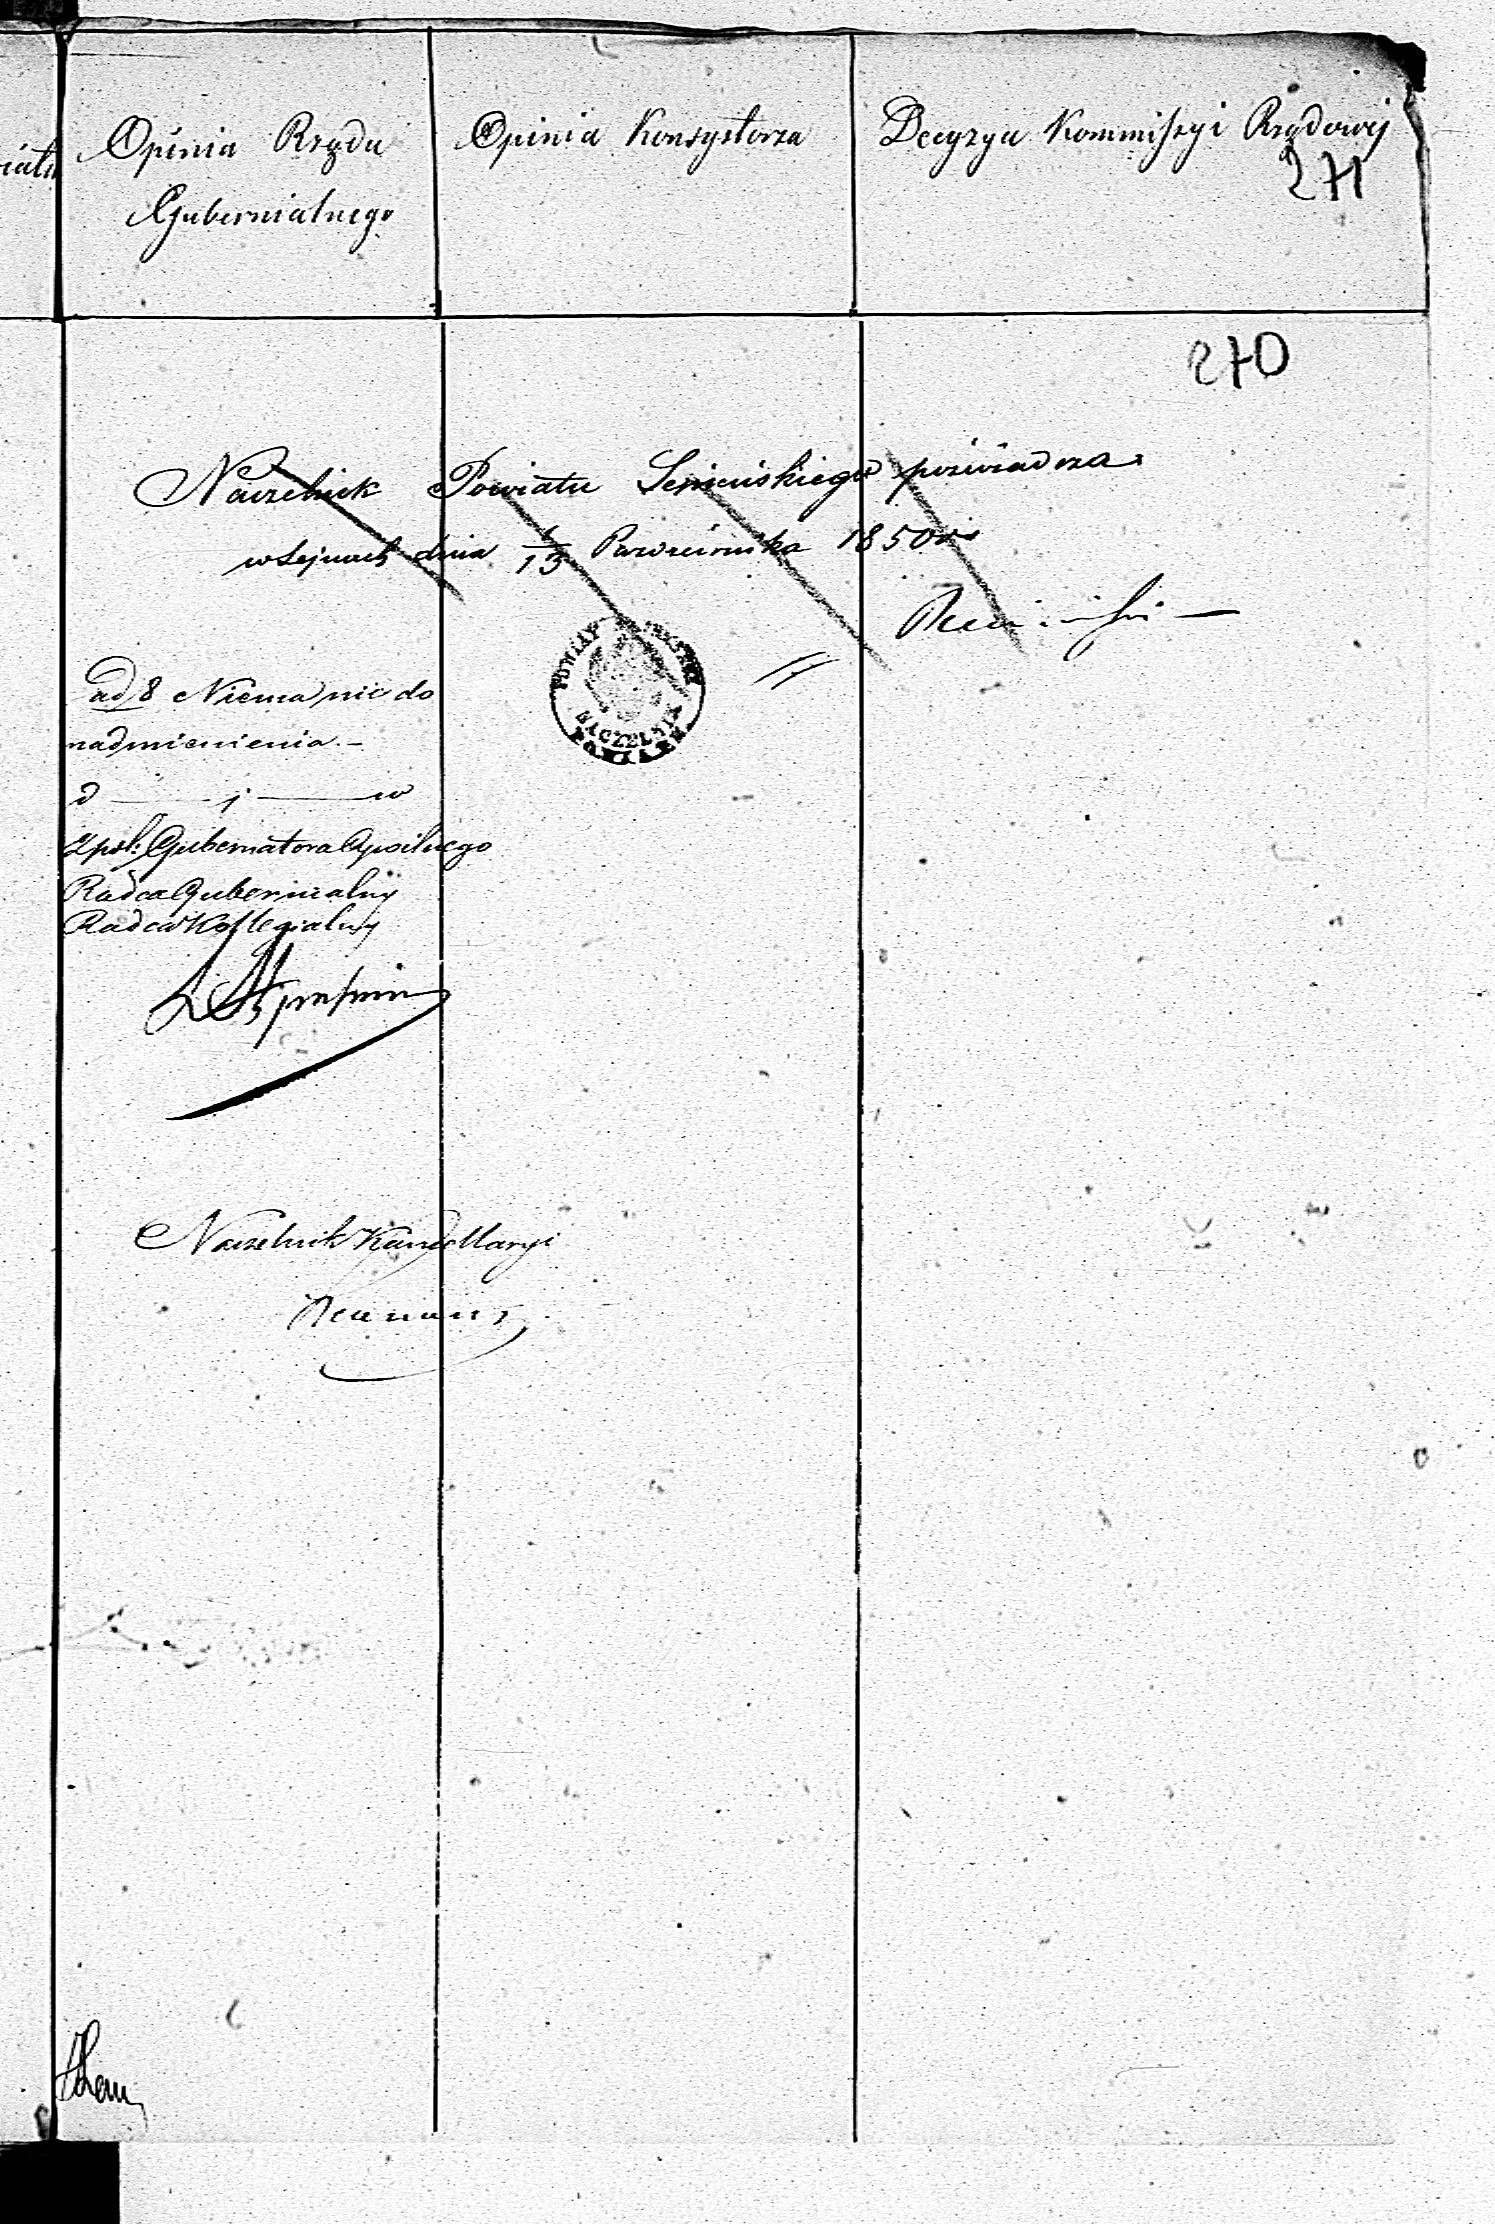 Opinia Rządu
Gubernialnego
Opinia Konsystorza
Decyzya Kommissyi Rządowej
271
270
Naczelnik Powiatu Sejneńskiego poświadcza
w Sejnach dnia 1/13 Października 1850 r.
POWIAT SEJNEŃSKI
NACZELNIK
POWIATU
ad 8 Niema nic do
nadmienienia.-
Gubernatora Cywilnego
Radca Gubernialny
Radca Kollegialny
Naczelnik Kancellaryi